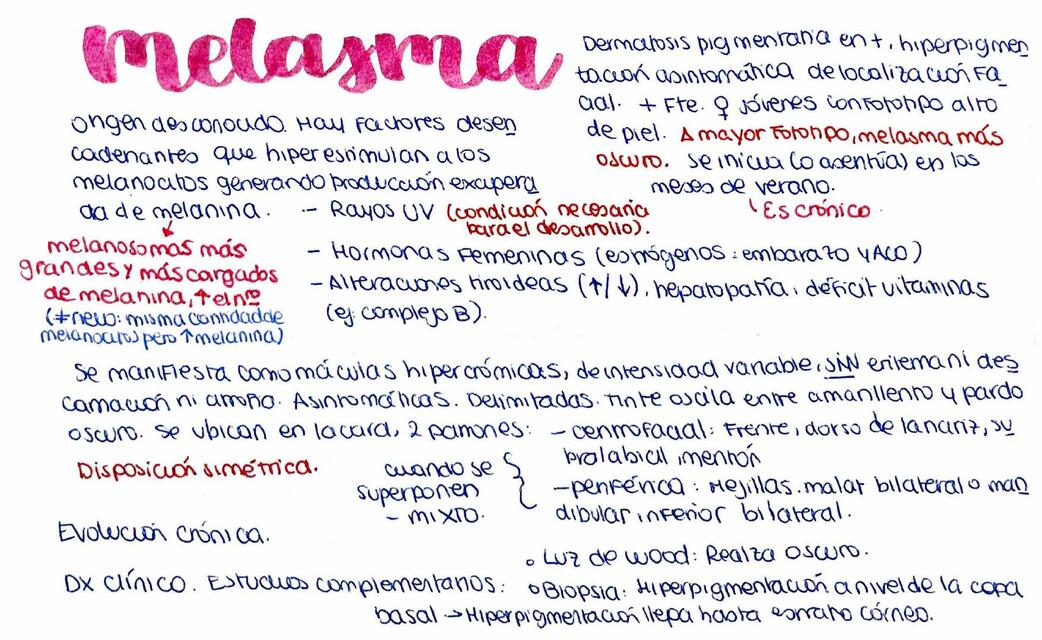 melasma
Dermatosis pigmentaria en +, hiperpigmen
tación asintomática de localización fa
cial. + Fte. ♀ jóvenes con fototipo alto
de piel. Δ mayor fototipo, melasma más
oscuro. Se inicia (o acentúa) en los
meses de verano.
Es crónico
Origen desconocido. Hay factores desen
cadenantes que hiperestimulan a los
melanocitos generando producción exapera
da de melanina.
melanosomas más
grandes y más cargados
de melanina, ↑ el nro
(≠ nevo: misma cantidad de
melanocitos pero ↑ melanina)
- Rayos UV (condición necesaria
para el desarrollo).
- Hormonas femeninas (estrógenos: embarazo y ACO)
- Alteraciones tiroideas (↑/↓), hepatopatía, déficit vitaminas
(ej: complejo B).
Se manifiesta como máculas hipercrómicas, de intensidad variable, SIN eritema ni des
camación ni atrofia. Asintomáticas. Delimitadas. Tinte oscila entre amarillento y pardo
oscuro. Se ubican en la cara, 2 patrones:
Disposición simétrica.
- centrofacial: Frente, dorso de la nariz, su
pralabial, mentón
- periférica: Mejillas, malar bilateral o man
dibular, inferior bilateral.
cuando se
superponen
- mixto.
Evolución crónica.
Dx clínico. Estudios complementarios:
○ Luz de wood: Realza oscuro.
○ Biopsia: Hiperpigmentación a nivel de la capa
basal → Hiperpigmentación llega hasta estrato córneo.